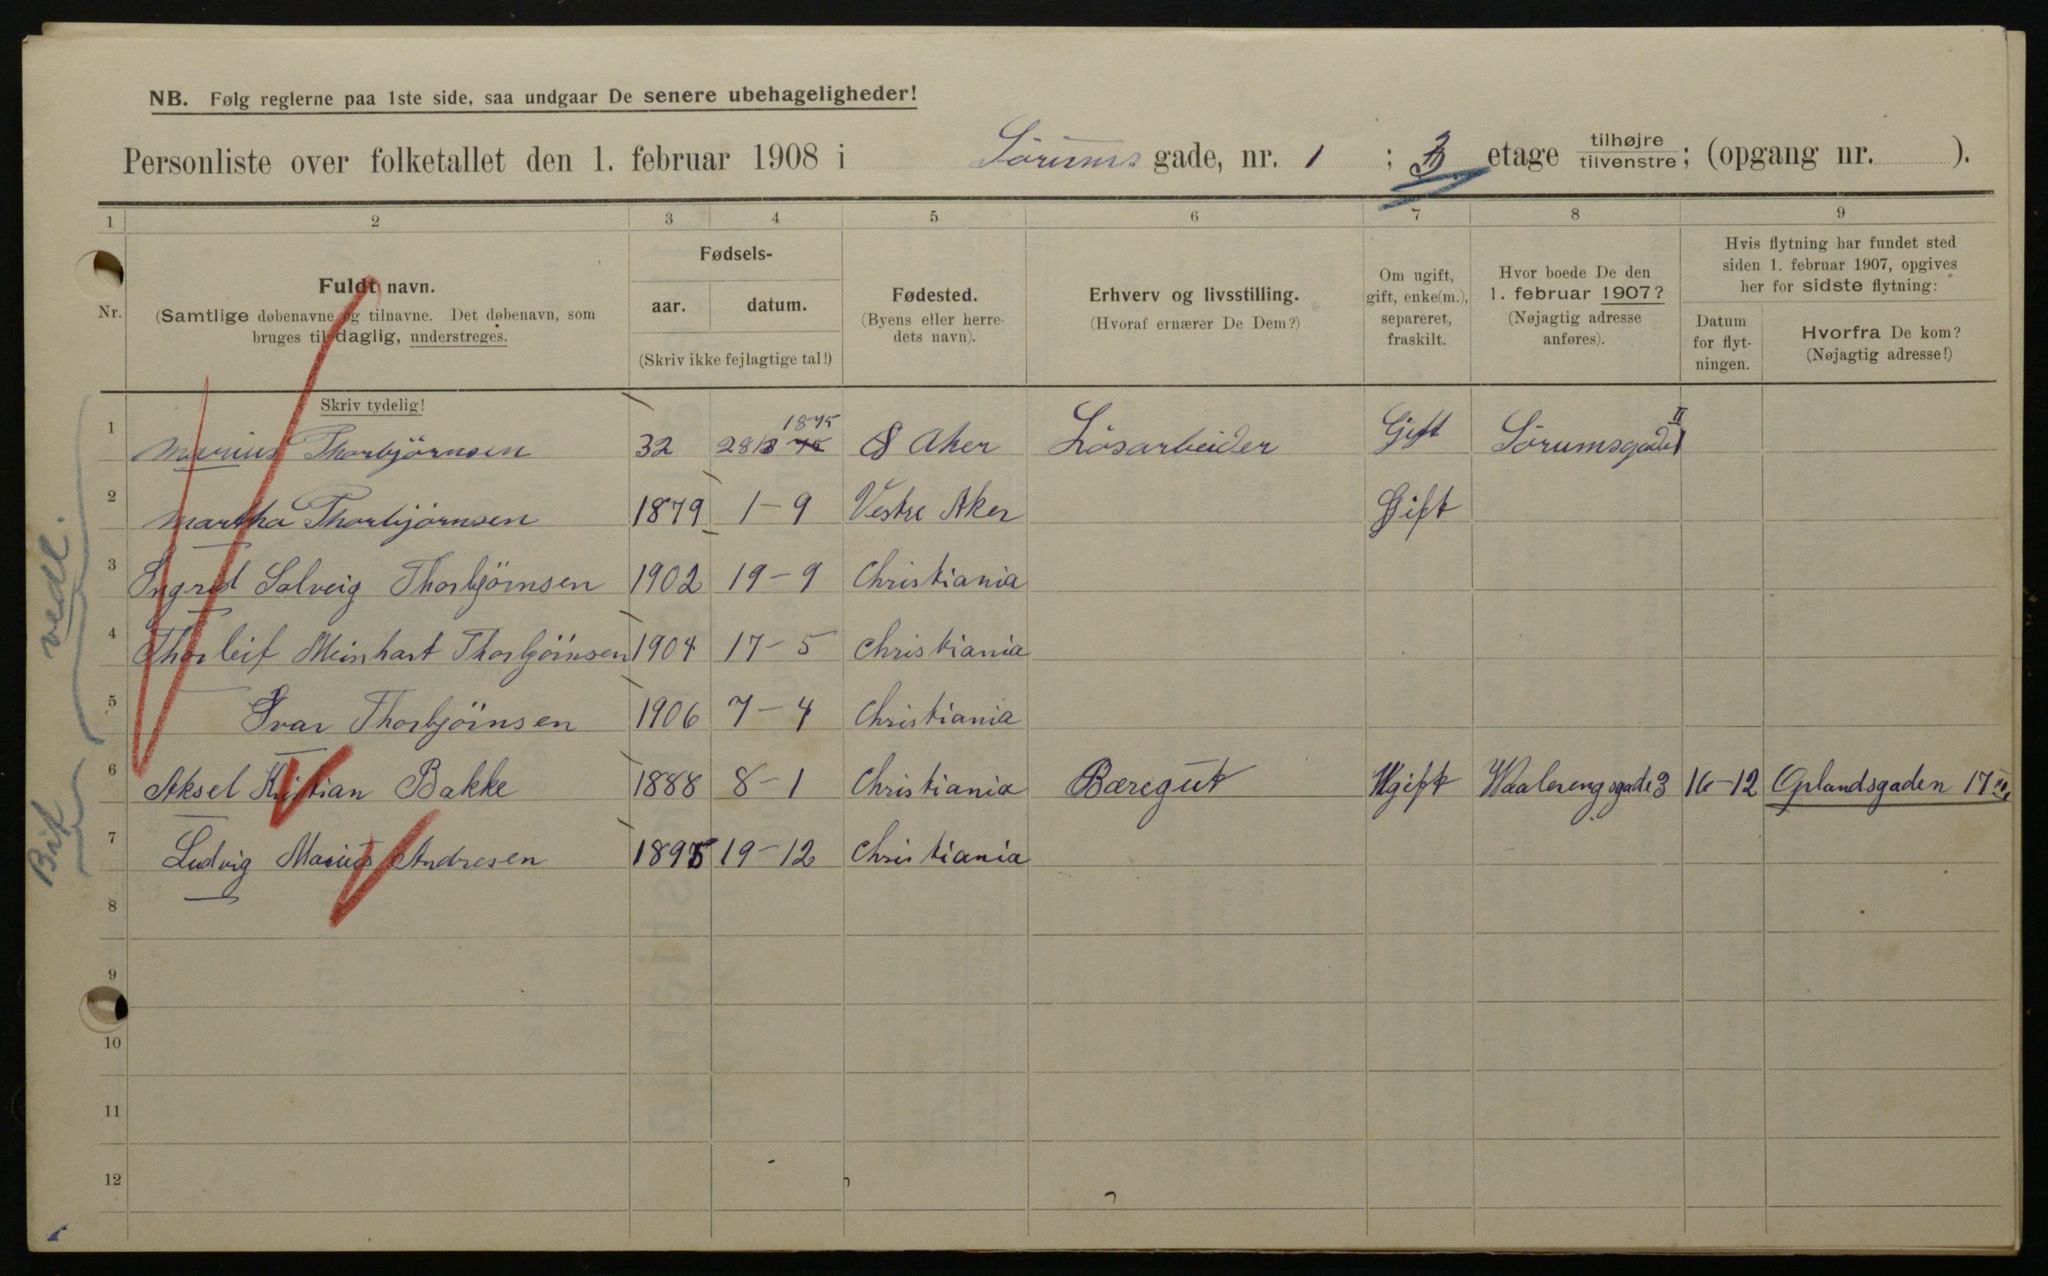 NB. Følg reglerne paa 1ste side, saa undgaar De senere ubehageligheder!
Personliste over folketallet den 1. februar 1908 i Sörums gade, nr. 1 ; 3 etage tilhøjre tilvenstre; (opgang nr. ).
1 2 3 4 5 6 7 8 9
Nr.
Fuldt navn.
(Samtlige døbenavne og tilnavne. Det døbenavn, som
bruges til daglig, understreges.
Skriv tydelig!
Fødsels-
aar. datum.
(Skriv ikke fejlagtige tal!)
Fødested.
(Byens eller herre-
dets navn).
Erhverv og livsstilling.
(Hvoraf ernærer De Dem?)
Om ugift,
gift, enke(m.),
separeret,
fraskilt.
Hvor boede De den
1. februar 1907?
(Nøjagtig adresse
anføres).
Hvis flytning har fundet sted
siden 1. februar 1907, opgives
her for sidste flytning:
Datum
for flyt-
ningen.
Hvorfra De kom?
(Nøjagtig adresse!)
1 Marius Thorbjörnsen 32 28/3 1875 Aker Lösarbeider Gift Sörumsgade 1 II
2 Martha Thorbjörnsen 1879 1-9 Vestre Aker Gift
3 Ingrid Solveig Thorbjörnsen 1902 19-9 Christiania
4 Thorleif Meinhart Thorbjörnsen 1904 17-5 Christiania
5 Ivar Thorbjörnsen 1906 7-4 Christiania
6 Aksel Kristian Bakke 1888 8-1 Christiania Bæregut Ugift Waalerengsgade 3 16-12 Oplandsgaden 17
7 Ludvig Marius Andresen 1895 19-12 Christiania
8
9
10
11
12
Bit vedl.